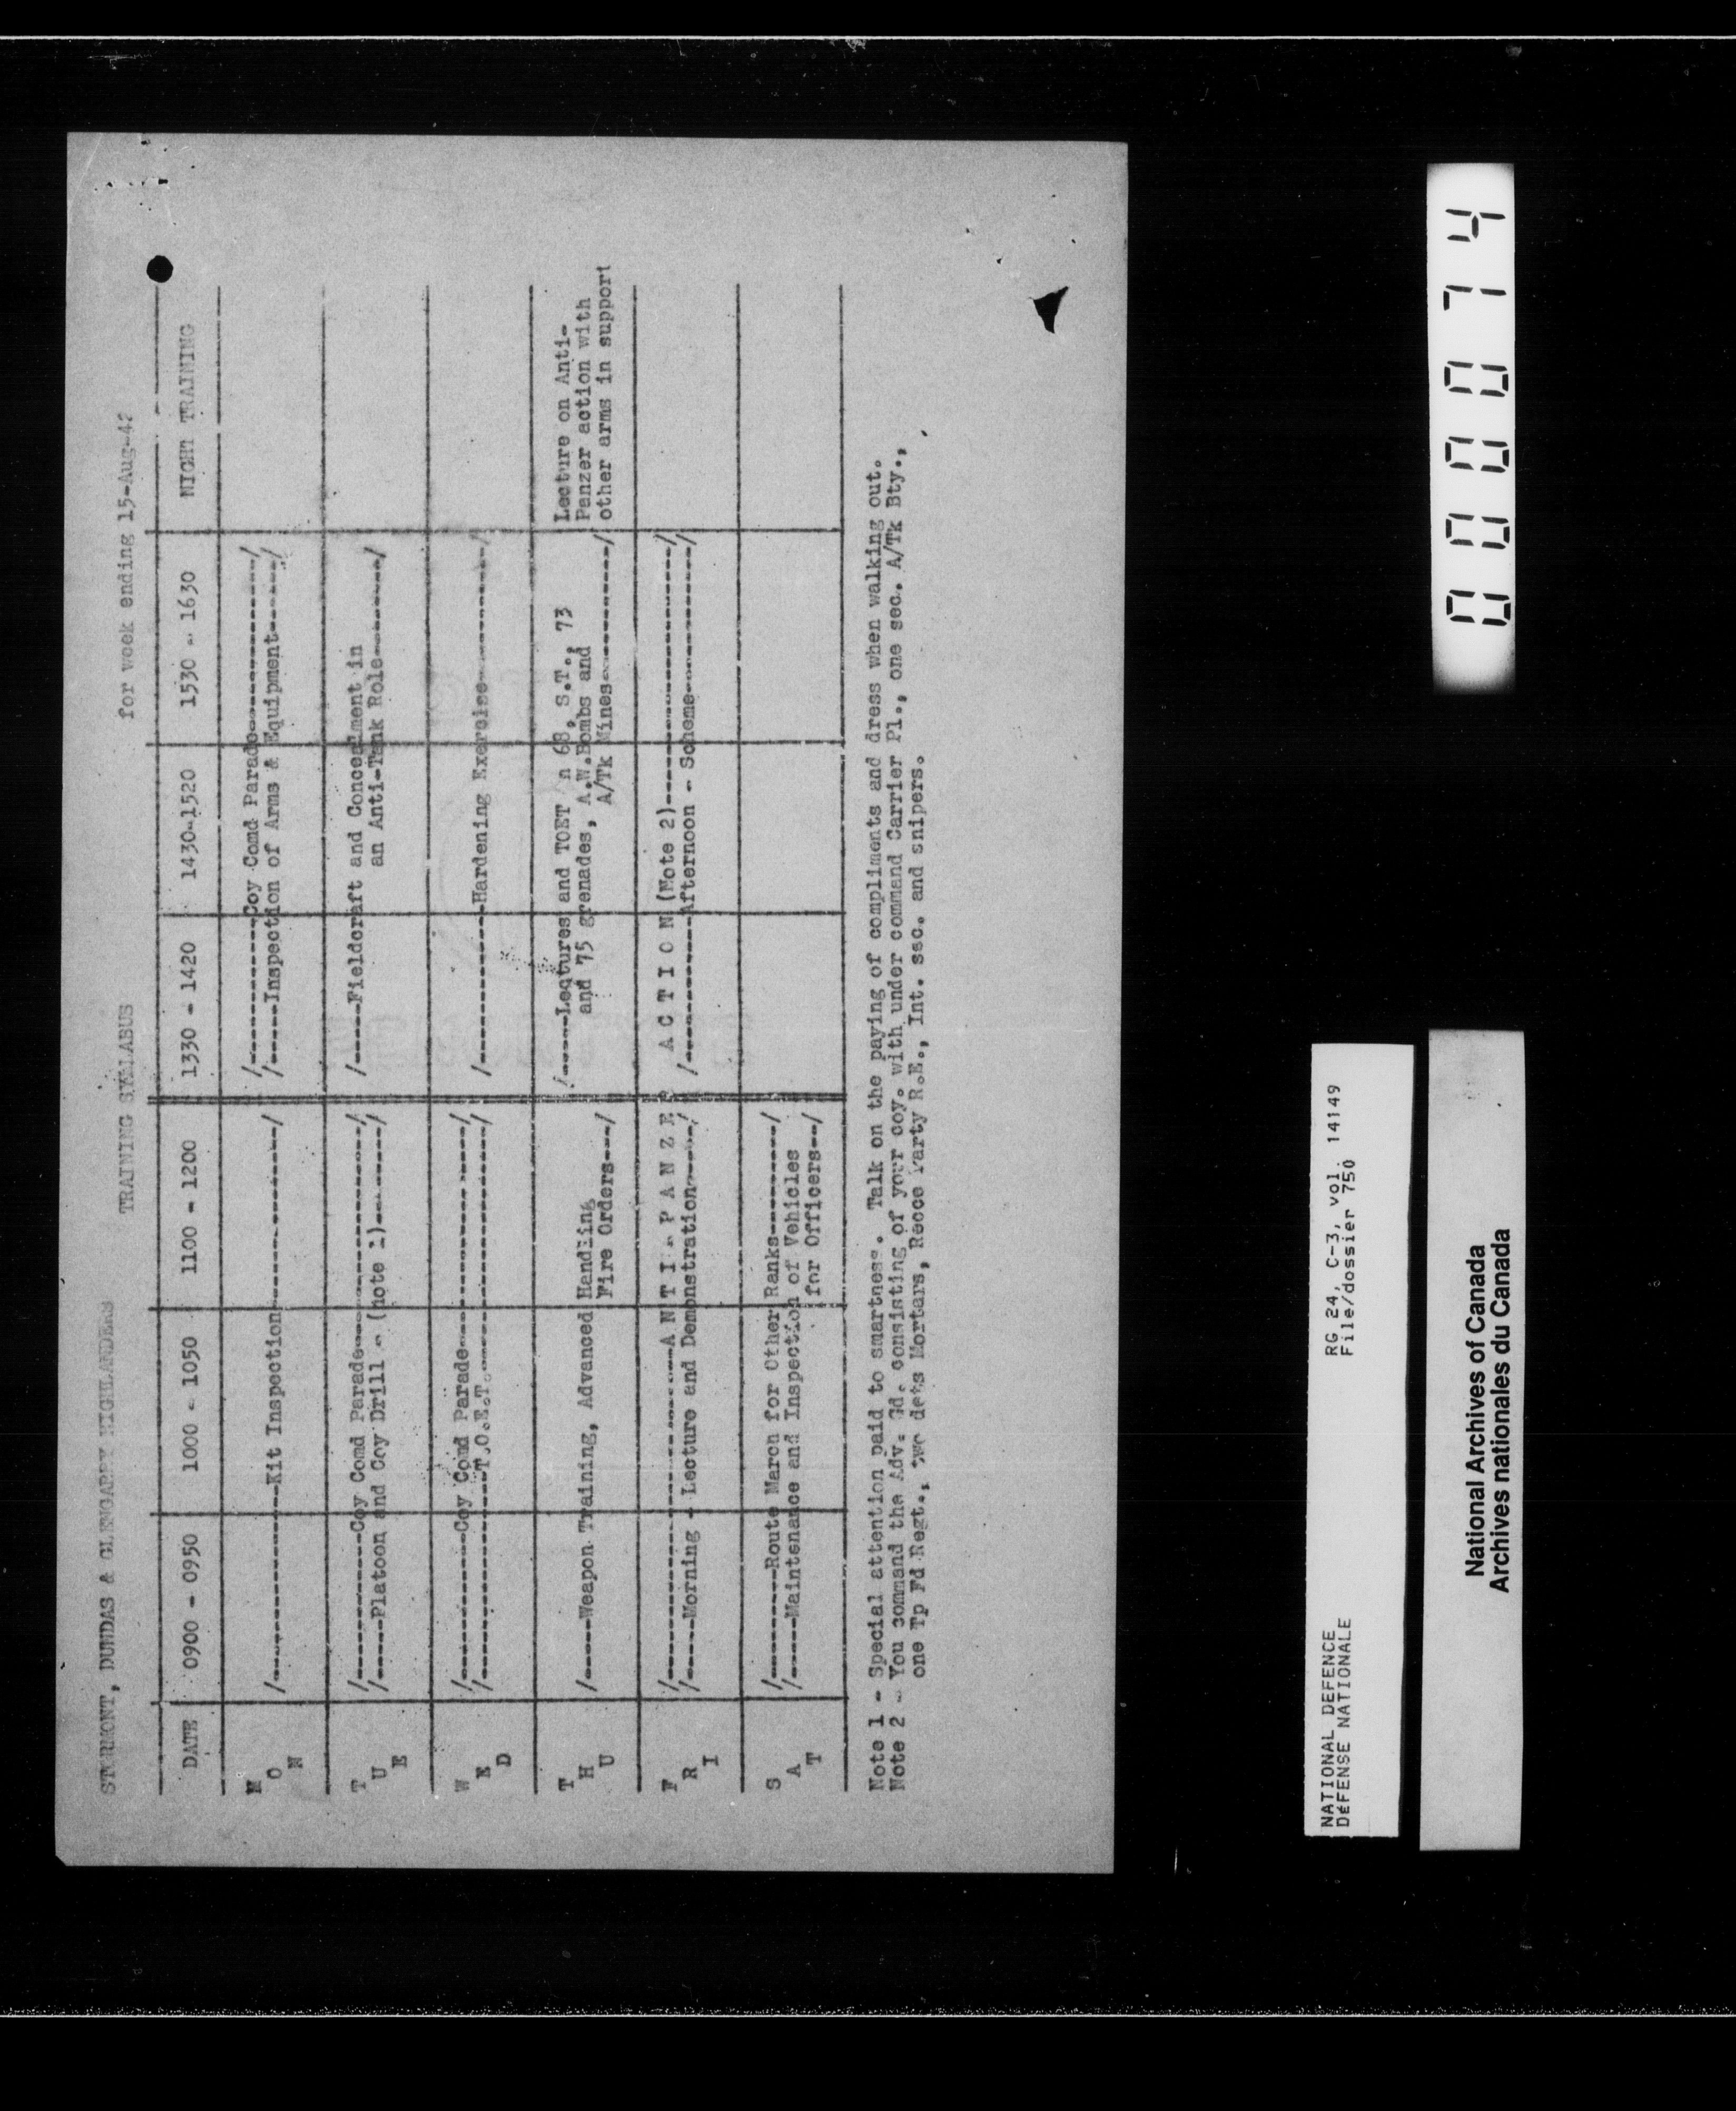 STORMONT, DUNDAS & GLENGARRY HIGHLANDERS
TRAINING SYLLABUS for week ending 15-Aug-42
DATE 0900 - 0950 1000 - 1050 1100 - 1200 1330 - 1420 1430-1520 1530 - 1630 NIGHT TRAINING
MON /-------------Kit Inspection-------------/ /-----------Coy Comd Parade-------------/
/-----Inspection of Arms & Equipment-----/
TUE /----------Coy Comd Parade-------------/ /-----Fieldcraft and Concealment in
/-----Platoon and Coy Drill - (note 1)-------/ an Anti-Tank Role-------/
WED /----------Coy Comd Parade-------------/ /----------Hardening Exercise----------/
/---------------T.O.E.T.---------------/
THU /-----Weapon Training, Advanced Handling /-----Lectures and TOET on 68, S.T., 73 Lecture on Anti-
Fire Orders---/ and 75 grenades, A.W.Bombs and Panzer action with
A/Tk Mines---------/ other arms in support
FRI /--------------------A N T I - P A N Z E R A C T I O N (Note 2)--------------------/
/-----Morning - Lecture and Demonstration-----/ /----------Afternoon - Scheme----------/
SAT /--------Route March for Other Ranks---------/
/-----Maintenance and Inspection of Vehicles
for Officers--/
Note 1 - Special attention paid to smartness. Talk on the paying of compliments and dress when walking out.
Note 2 - You command the Adv. Gd. consisting of your coy. with under command Carrier Pl., one sec. A/Tk Bty.,
one Tp Fd Regt., two dets Mortars, Recce Party R.E., Int. sec. and snipers.
NATIONAL DEFENCE RG 24, C-3, vol. 14149
DéFENSE NATIONALE File/dossier 750
National Archives of Canada
Archives nationales du Canada
000074